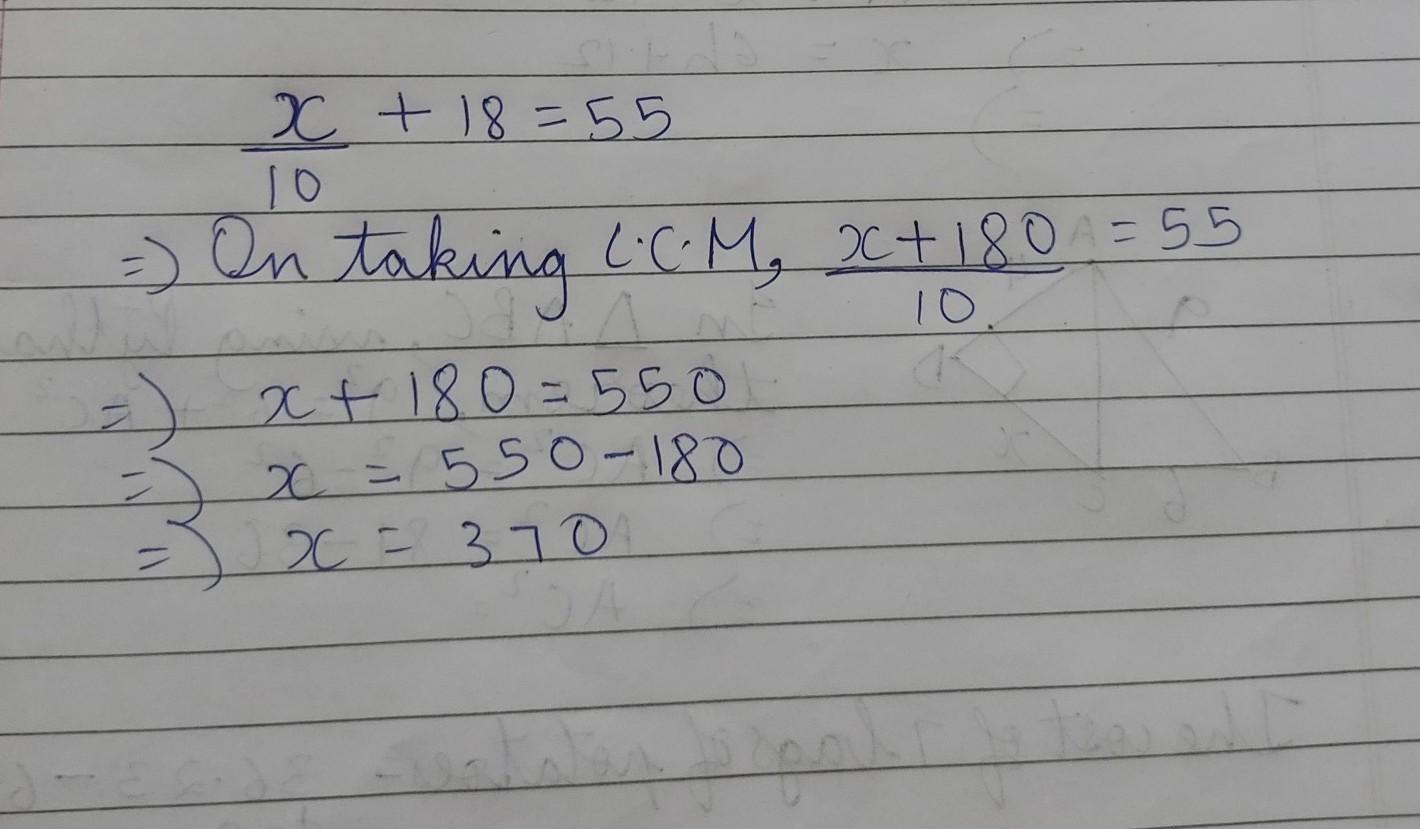 x/10 + 18 = 55
=) On taking L.C.M, x+180/10 = 55
=) x + 180 = 550
=) x = 550 - 180
=) x = 370